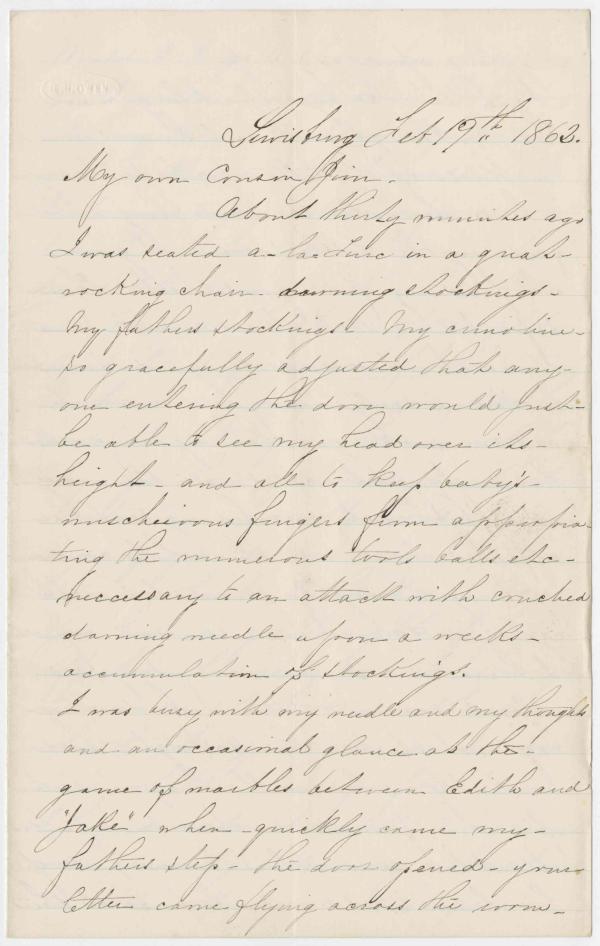 Lewisburg Feb 19th 1863.
My own Cousin Jim -
About thirty minutes ago
I was seated a-la-Turc in a great-
rocking chair - darning stockings -
My fathers stockings - My crinoline -
so gracefully adjusted that any-
one entering the door would just-
be able to see my head over its -
height - and all to keep baby's -
mischeivous fingers from appropria-
ting the numerous tools balls etc -
neccessary to an attack with couched
darning needle upon a weeks -
accumulation of stockings.
I was busy with my needle and my thoughts
and an occasional glance at the -
game of marbles between Edith and
"Jake" when - quickly came my -
fathers step - the door opened - your
letter came flying across the room -